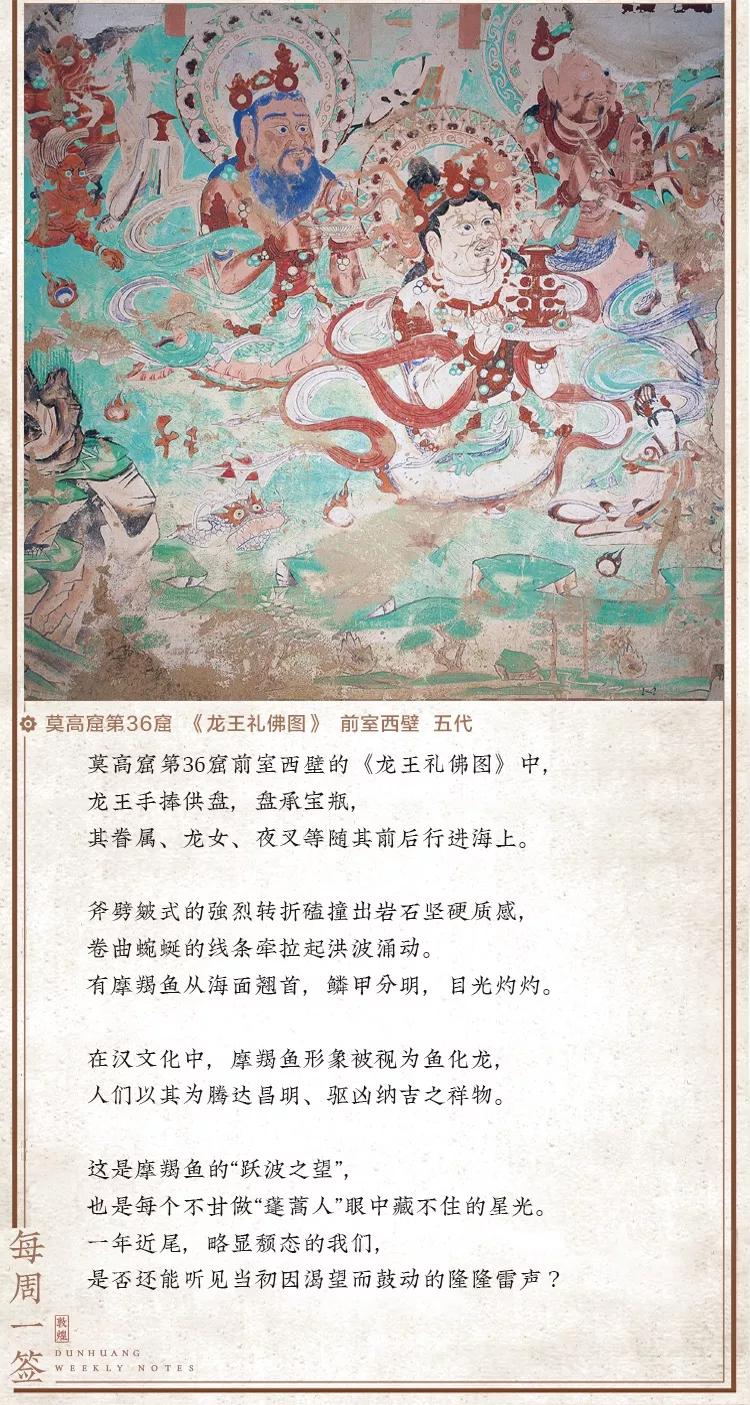 莫高窟第36窟 《龙王礼佛图》 前室西壁 五代
莫高窟第36窟前室西壁的《龙王礼佛图》中，
龙王手捧供盘，盘承宝瓶，
其眷属、龙女、夜叉等随其前后行进海上。
斧劈皴式的強烈转折磕撞出岩石坚硬质感，
卷曲蜿蜒的线条牵拉起洪波涌动。
有摩羯鱼从海面翘首，鳞甲分明，目光灼灼。
在汉文化中，摩羯鱼形象被视为鱼化龙，
人们以其为腾达昌明、驱凶纳吉之祥物。
这是摩羯鱼的“跃波之望”，
也是每个不甘做“蓬蒿人”眼中藏不住的星光。
一年近尾，略显颓态的我们，
是否还能听见当初因渴望而鼓动的隆隆雷声？
每周一签
敦煌
DUNHUANG
WEEKLY NOTES